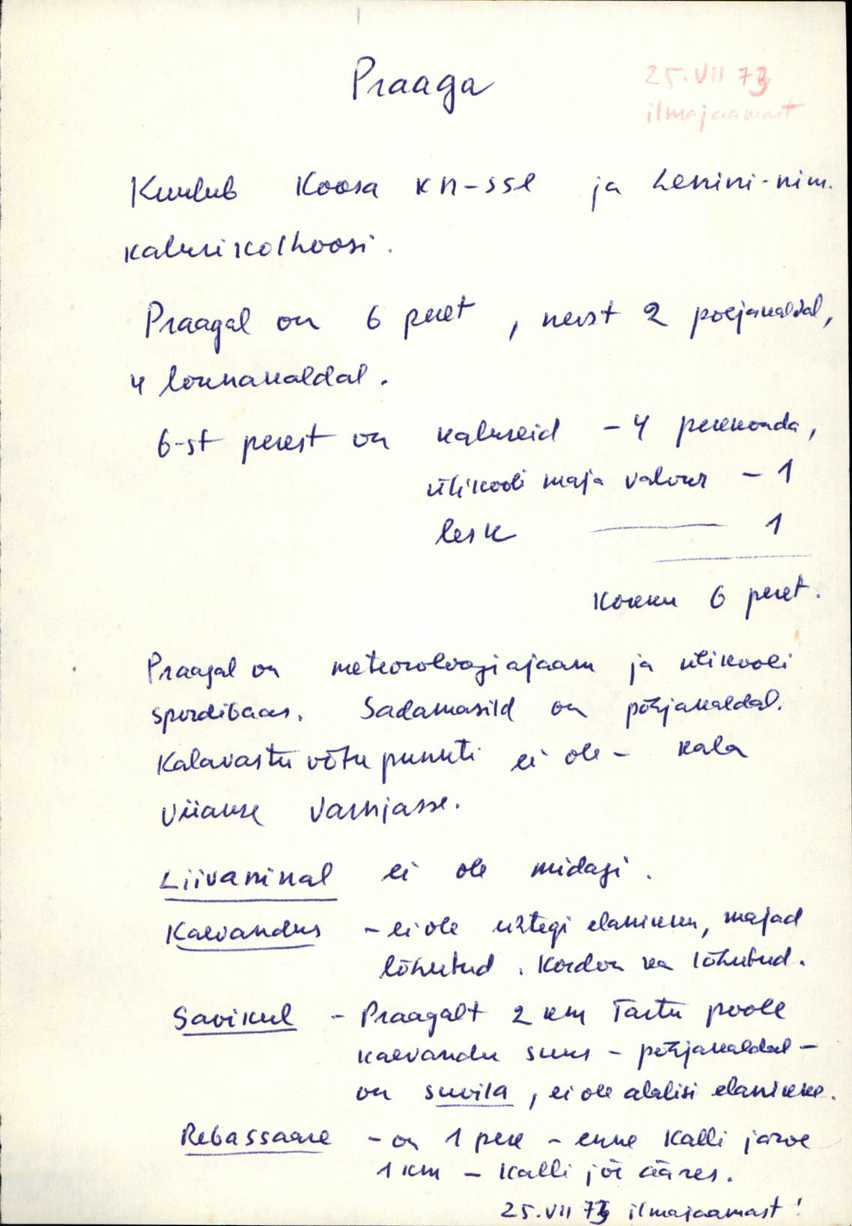 Praaga
25.VII 73
ilmajaamast
Kuulub Koosa kn-sse ja Lenini-nim.
kalurikolhoosi.
Praagal on 6 peret, neist 2 põhjakaldal,
4 lõunakaldal.
6-st perest on kalureid – 4 perekonda,
ülikooli maja valvur – 1
lesk —— 1
Kokku 6 peret.
Praagal on meteoroloogiajaam ja ülikooli
spordibaas. Sadamasild on põhjakaldal.
Kalavastuvõtu punkti ei ole – kala
viiakse Varnjasse.
Liivaninal ei ole midagi.
Kaevandus – ei ole ühtegi elanikku, majad
lõhutud. Kordon ka lõhutud.
Savikul – Praagalt 2 km Tartu poole
kaevandu suus – põhjakaldal –
on suvila, ei ole alalisi elanikke.
Rebassaare – on 1 pere – enne Kalli järve
1 km – Kalli jõe ääres.
25.VII 73 ilmajaamast!